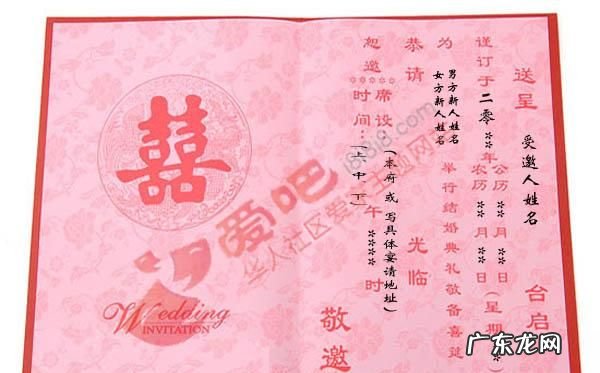 送呈 受邀人姓名 台启
谨订于二零**年
公历**月**日
农历**月**日
(星期*)
为
男方新人姓名
女方新人姓名
举行结婚典礼敬备喜筵
恭请 光临
恕邀*****
席设:(本府或写具体宴请地址)
时间:(上中下)午****时
敬邀
囍
Wedding
INVITATION
爱吧
广东龙网